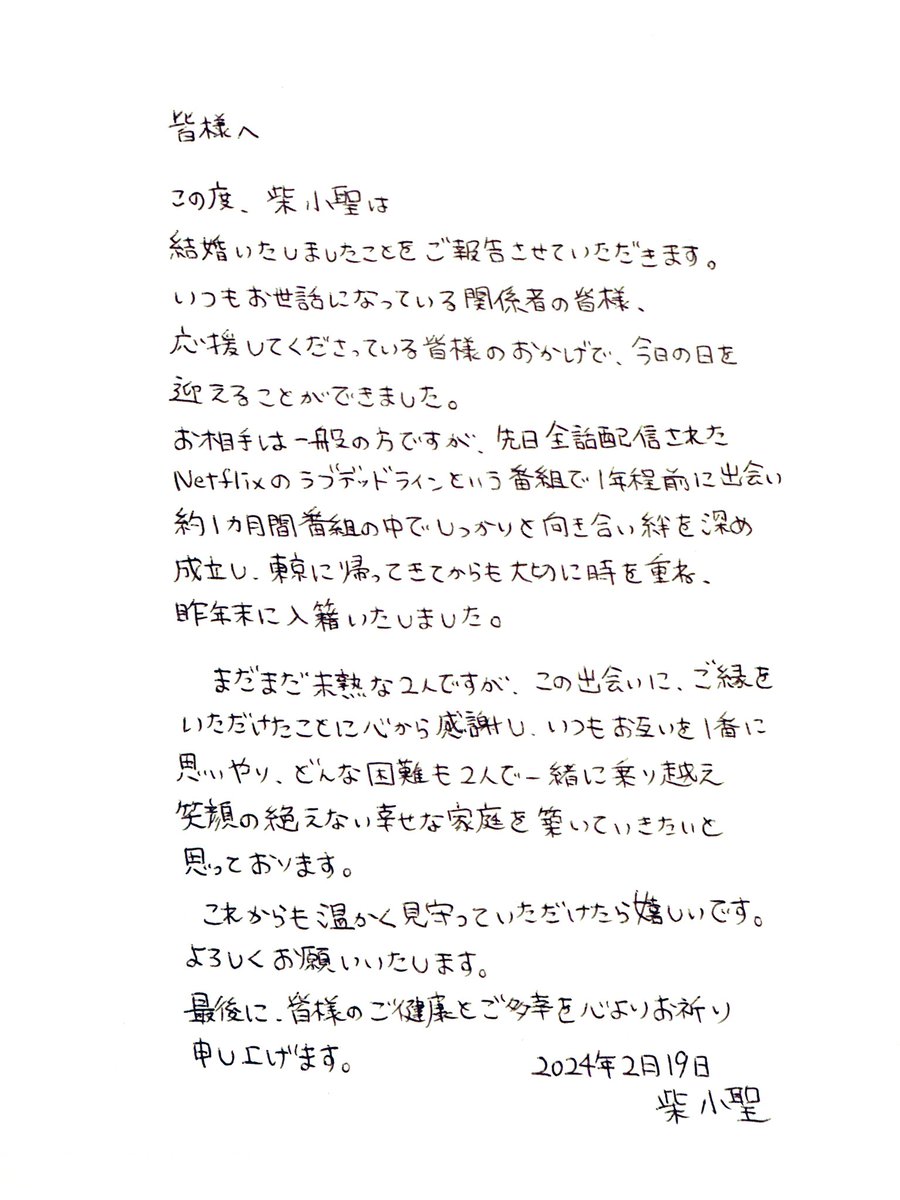 皆様へ
この度、柴小聖は
結婚いたしましたことをご報告させていただきます。
いつもお世話になっている関係者の皆様、
応援してくださっている皆様のおかげで、今日の日を
迎えることができました。
お相手は一般の方ですが、先日全話配信された
Netflixのラブデッドラインという番組で1年程前に出会い
約1カ月間番組の中でしっかりと向き合い絆を深め
成立し、東京に帰ってきてからも大切に時を重ね、
昨年末に入籍いたしました。
まだまだ未熟な2人ですが、この出会いに、ご縁を
いただけたことに心から感謝し、いつもお互いを1番に
思いやり、どんな困難も2人で一緒に乗り越え
笑顔の絶えない幸せな家庭を築いていきたいと
思っております。
これからも温かく見守っていただけたら嬉しいです。
よろしくお願いいたします。
最後に、皆様のご健康とご多幸を心よりお祈り
申し上げます。
2024年2月19日
柴小聖